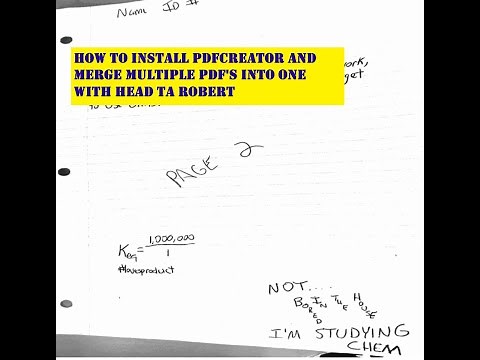 Name ID #
HOW TO INSTALL PDFCREATOR AND
MERGE MULTIPLE PDF'S INTO ONE
WITH HEAD TA ROBERT
work,
get
to use
PAGE 2
Keq = 1,000,000
1
#lavaproduct
NOT....
BORED IN THE HOUSE
I'M STUDYING
CHEM